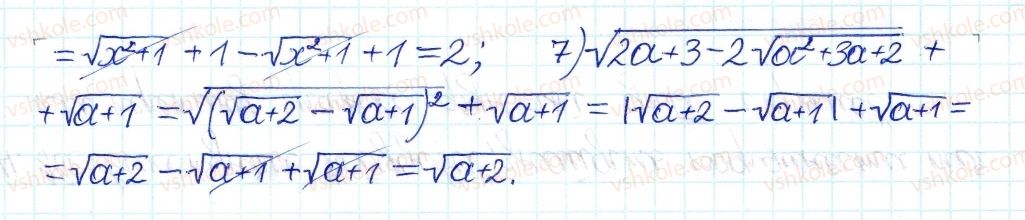 = √(x²+1) + 1 - √(x²+1) + 1 = 2; 7) √(2a+3-2√(a²+3a+2)) +
+ √(a+1) = √((√(a+2) - √(a+1))²) + √(a+1) = |√(a+2) - √(a+1)| + √(a+1) =
= √(a+2) - √(a+1) + √(a+1) = √(a+2).